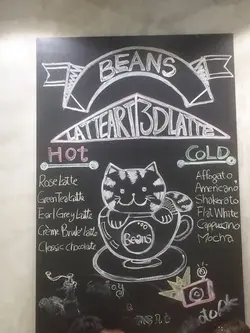 BEANS
LATTEART 3DLATTE
HOT
Rose Latte
GreenTea Latte
Earl Grey Latte
Crème Brulée Latte
Classic chocolate
COLD
Affogato
Americano
Shakerato
Flat White
Cappuccino
Mocha
Beans